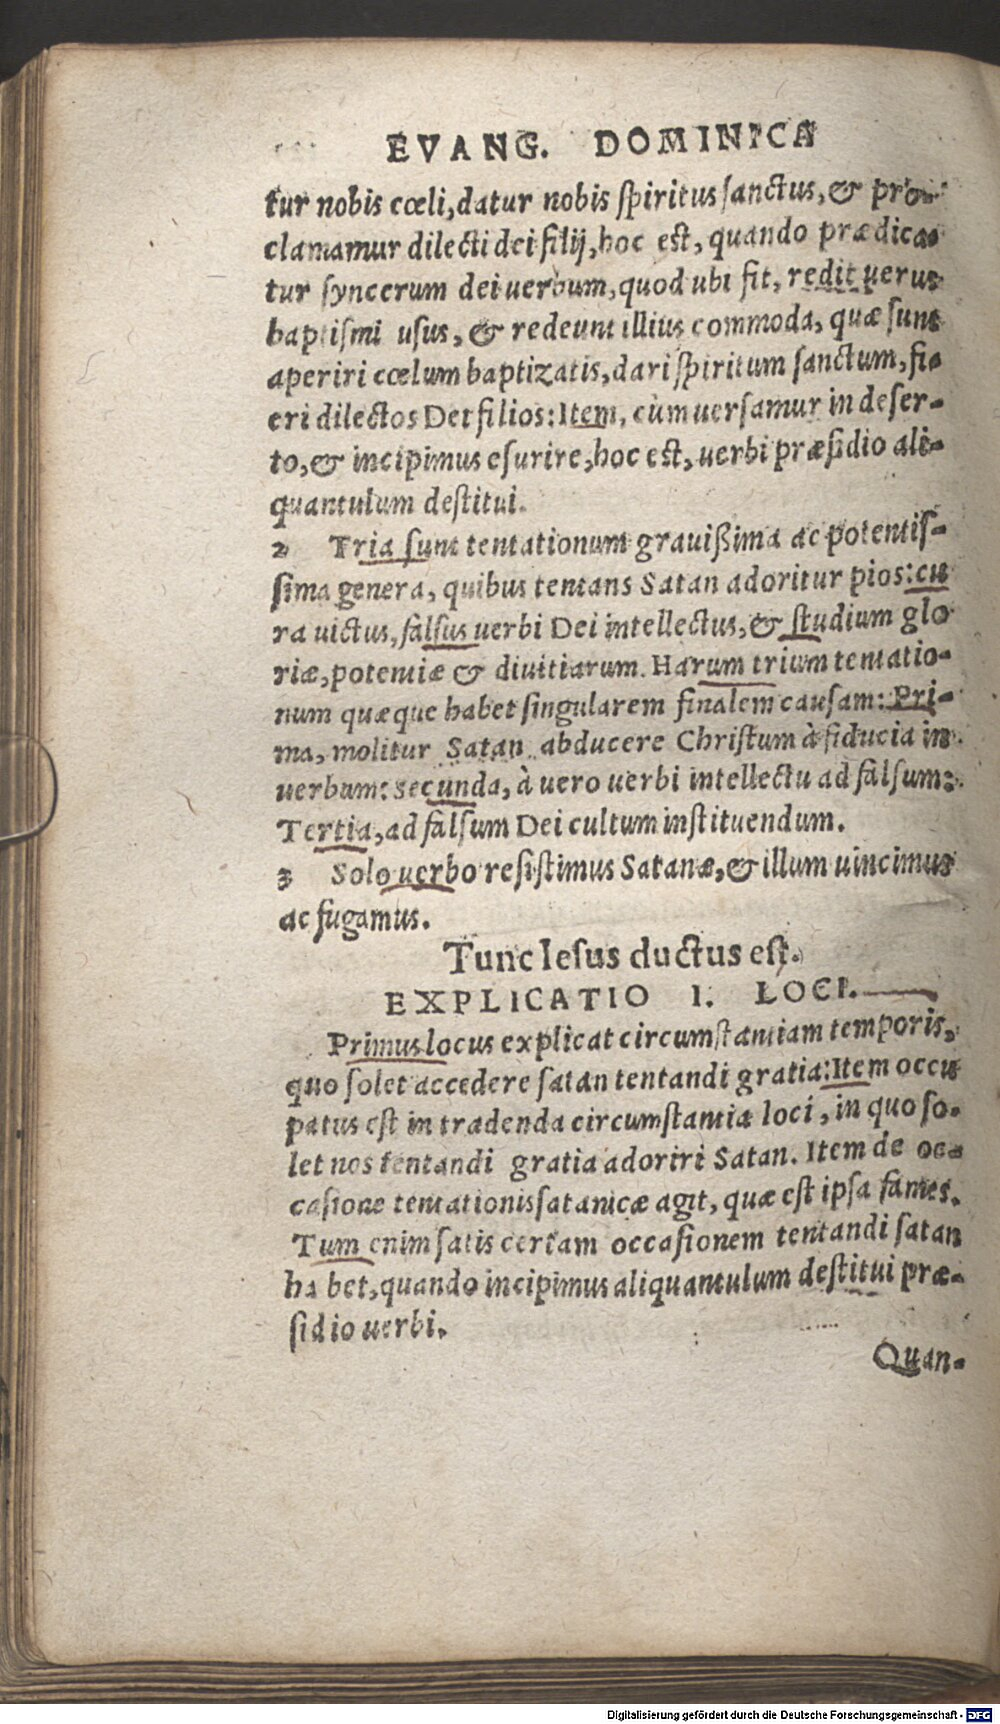 EVANG. DOMINICA
tur nobis cœli, datur nobis ſpiritus ſanctus, & pro-
clamamur dilecti dei filij, hoc eſt, quando prædica-
tur ſyncerum dei uerbum, quod ubi fit, redit uerus
baptiſmi uſus, & redeunt illius commoda, quæ ſunt
aperiri cœlum baptizatis, dari ſpiritum ſanctum, fi-
eri dilectos Dei filios: Item, cùm uerſamur in deſer-
to, & incipimus eſurire, hoc eſt, uerbi præſidio ali-
quantulum deſtitui.
2 Tria ſunt tentationum grauißima ac potentiſ-
ſima genera, quibus tentans Satan adoritur pios: cu
ra uictus, falſus uerbi Dei intellectus, & ſtudium glo
riæ, potentiæ & diuitiarum. Harum trium tentatio-
num quæque habet ſingularem finalem cauſam: Pri-
ma, molitur Satan abducere Chriſtum à fiducia in
uerbum: Secunda, à uero uerbi intellectu ad falſum:
Tertia, ad falſum Dei cultum inſtituendum.
3 Solo uerbo reſiſtimus Satanæ, & illum uincimus
ac fugamus.
Tunc Ieſus ductus eſt.
EXPLICATIO I. LOCI.
Primus locus explicat circumſtantiam temporis,
quo ſolet accedere ſatan tentandi gratia: Item occu
patus eſt in tradenda circumſtantiæ loci, in quo ſo-
let nos tentandi gratia adoriri Satan. Item de oc-
caſione tentationis ſatanicæ agit, quæ eſt ipſa fames.
Tum enim ſatis certam occaſionem tentandi ſatan
habet, quando incipimus aliquantulum deſtitui præ-
ſidio uerbi.
Quan-
Digitalisierung gefördert durch die Deutsche Forschungsgemeinschaft - DFG